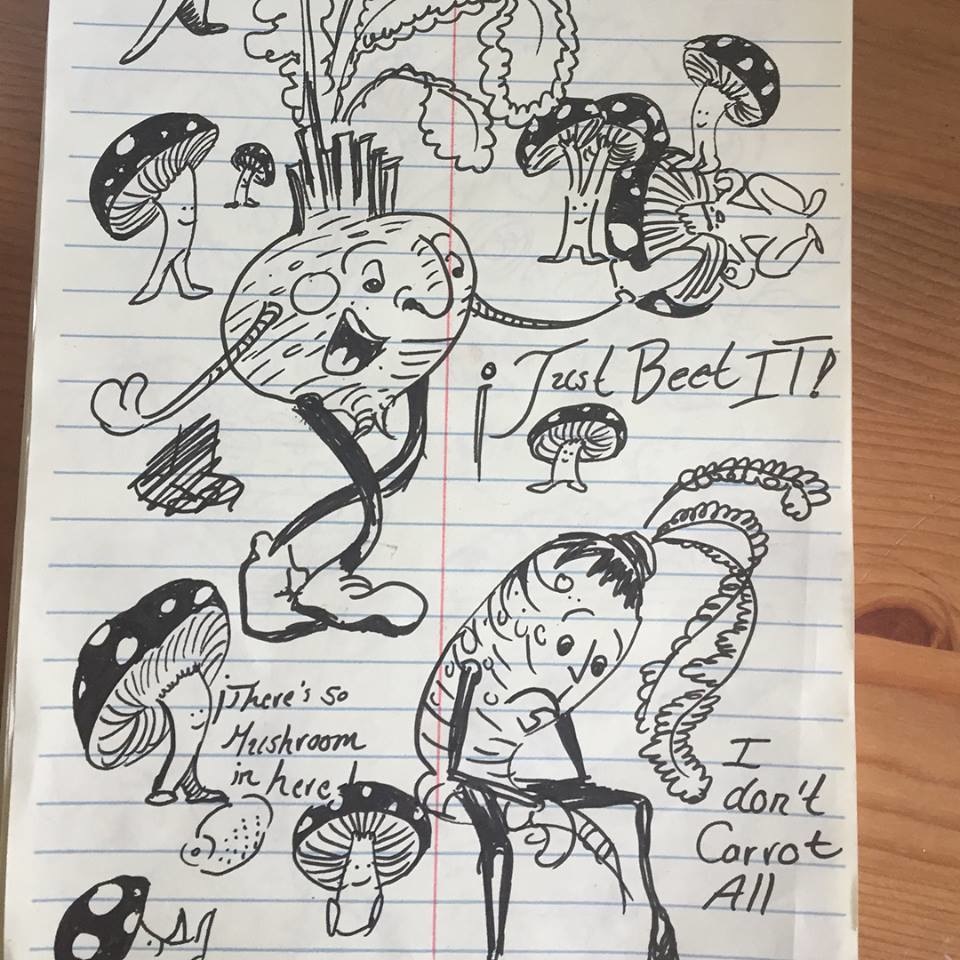 ¡Just Beet IT!
¡There's so
Mushroom
in here!
I
don't
Carrot
All